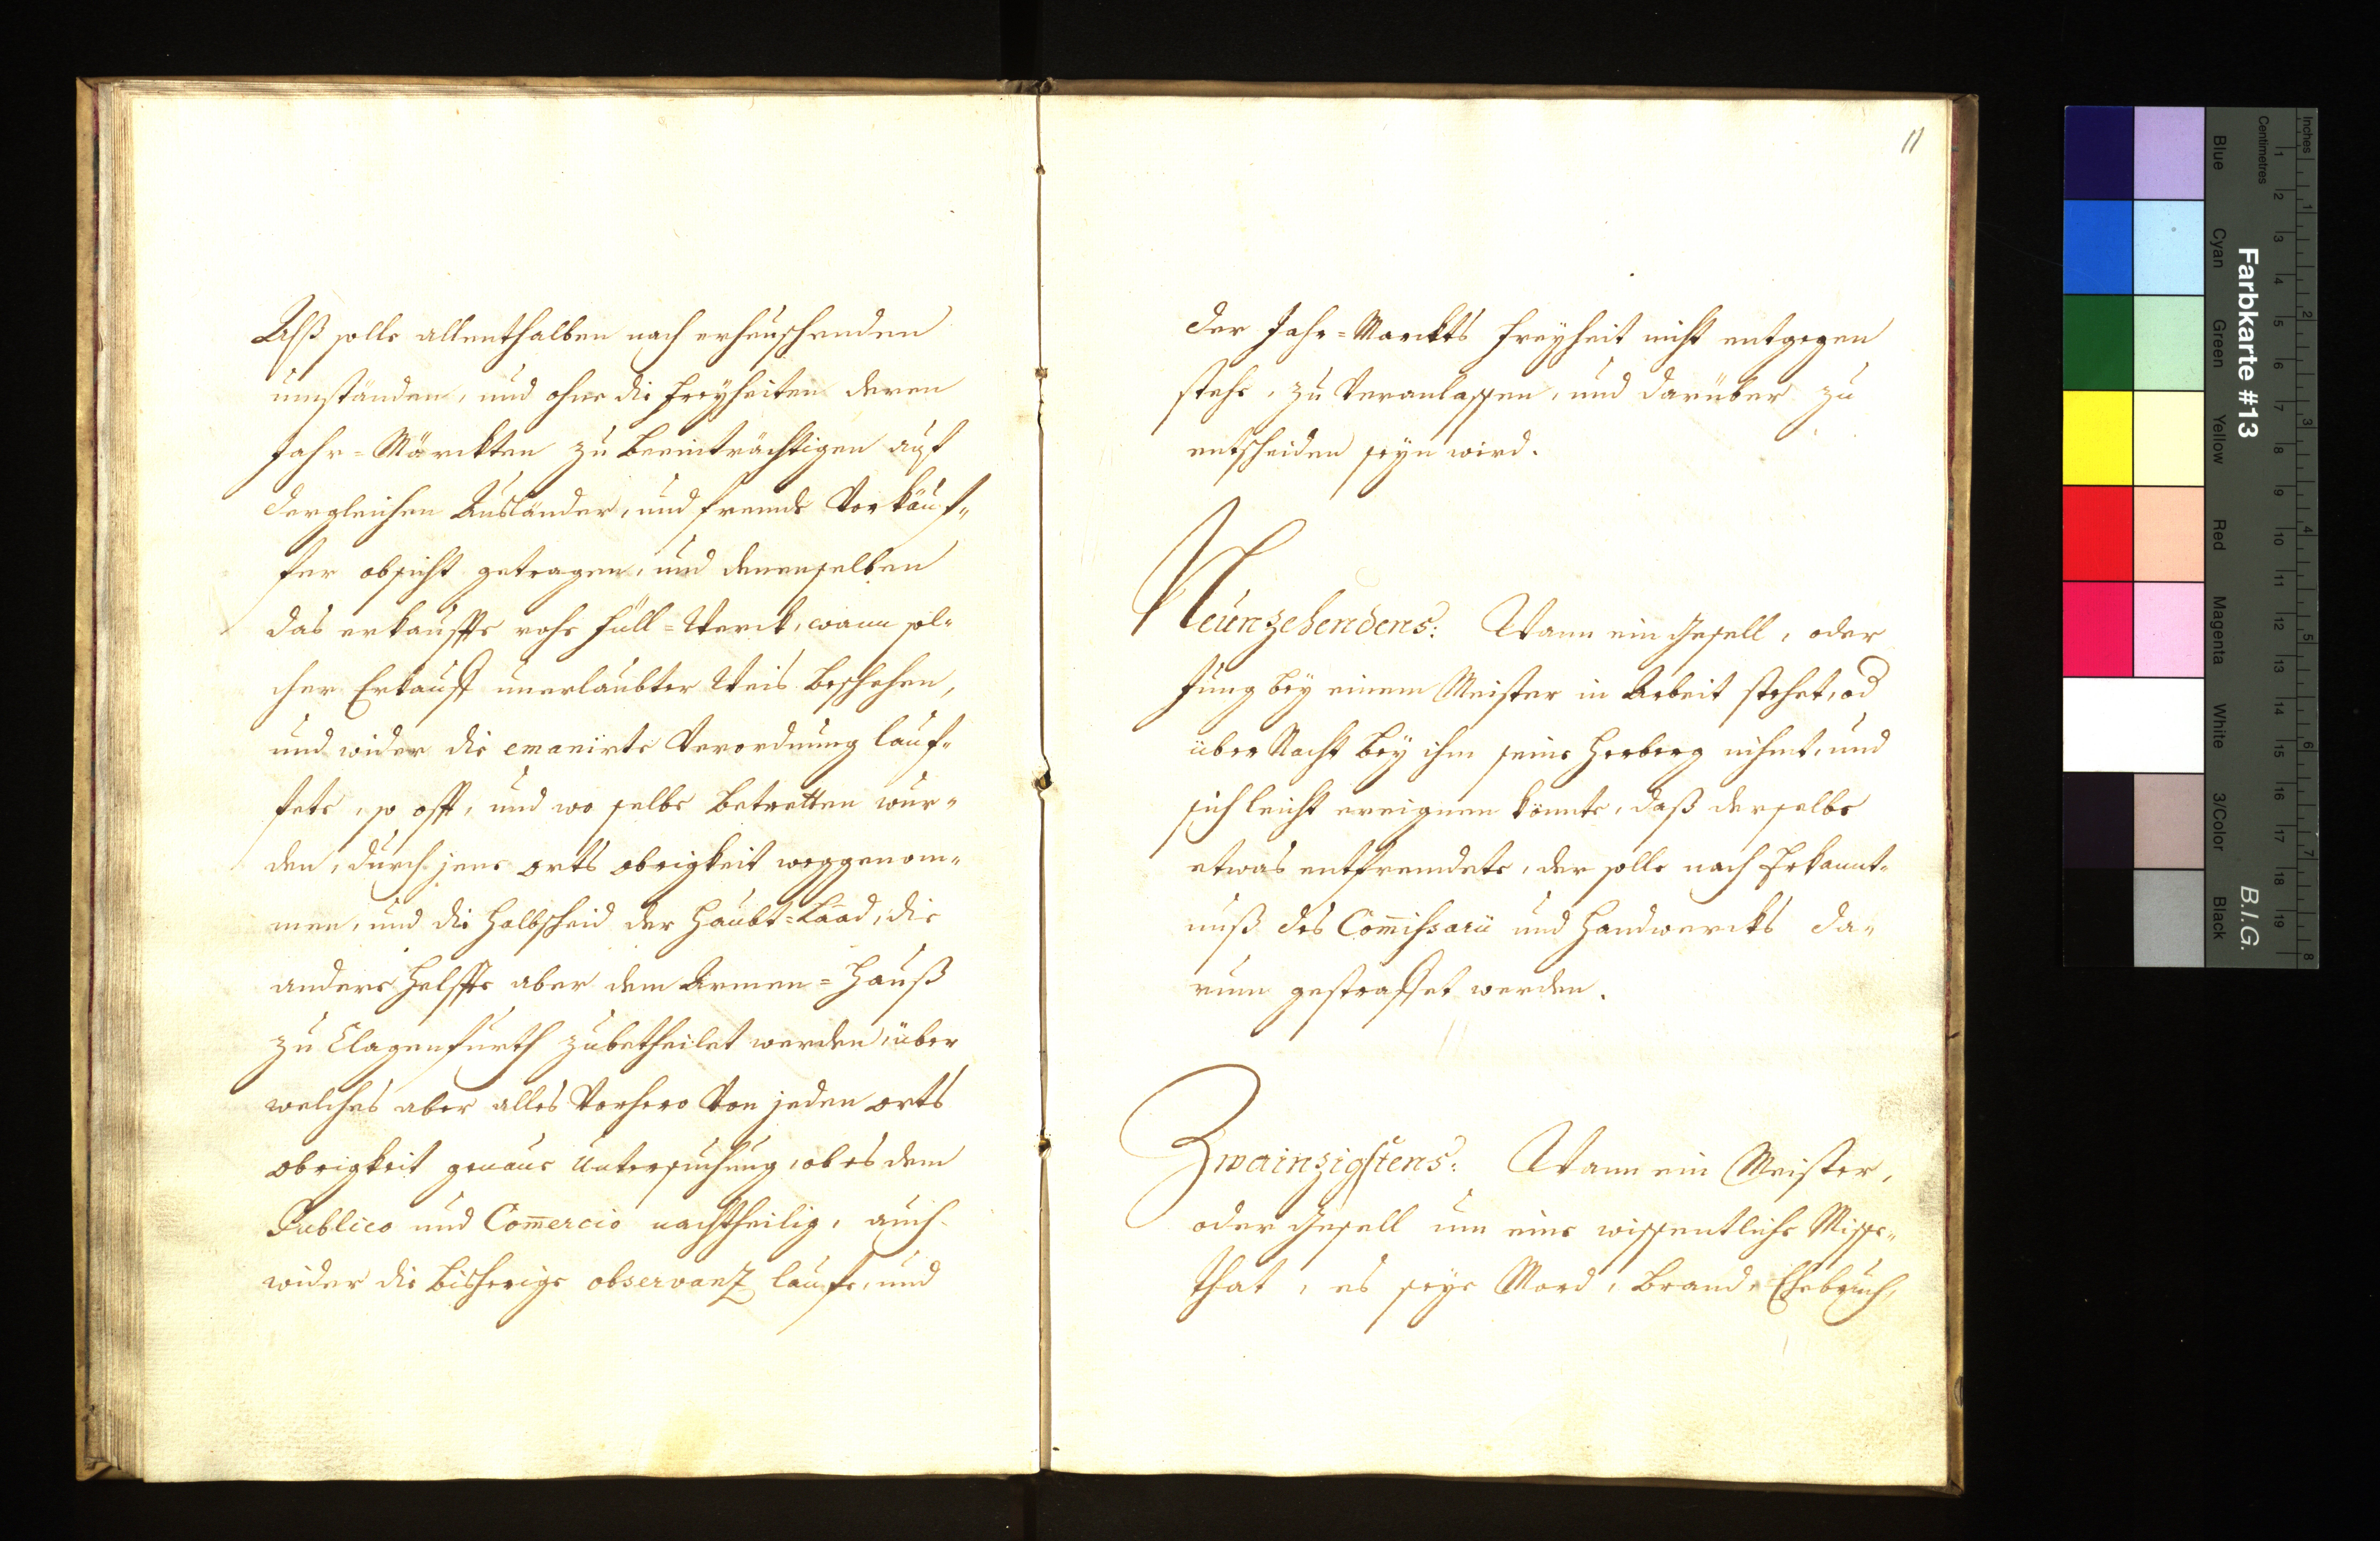 Alß solle allenthalben nach erheuschenden
umständen, und ohne die Freyheiten deren
Jahr=Märckten zu beeinträchtigen auf
dergleichen Ausländer, und fremde Vorkäuf„
fer obsicht getragen, und denenselben
das erkauffte rohe Füll=Werck, wann sol„
cher Erkauff unerlaubter Weis beschehen,
und wider die emanirte Verordnung lauf„
fete, so offt, und wo selbe betretten wur„
den, durch jene orts obrigkeit weggenom„
men, und die Halbscheid der Haubt=Laad, die
andere Helffte aber dem Armen=Hauß
zu Clagenfurth zubetheilet werden, über
welches aber alles Vorhero Von jeden orts
obrigkeit genaue Untersuchung, ob es dem
Publico und Com̄ercio nachtheilig, auch
wider die bisherige observanz lauffe, und
11
der Jahr=Marckts Freyheit nicht entgegen
stehe, zu Veranlassen, und darüber zu
entscheiden seyn wird.
Neünzehendens: Wann ein Gesell, oder
Jung bey einem Meister in Arbeit stehet, od
über Nacht bey ihm seine Herberg nihmt, und
sich leicht ereignen könnte, daß derselbe
etwas entfremdete, der solle nach Erkannt„
nuß des Com̄issarii und Handwercks da„
rum gestraffet werden.
Zwainzigstens: Wann ein Meister,
oder Gesell um eine wissentliche Misse„
that, es seye Mord, Brand, Ehebruch,
Farbkarte #13
B.I.G.
Inches
Centimetres
1 2 3 4 5 6 7 8 9 10 11 12 13 14 15 16 17 18 19
1 2 3 4 5 6 7 8
Blue
Cyan
Green
Yellow
Red
Magenta
White
3/Color
Black